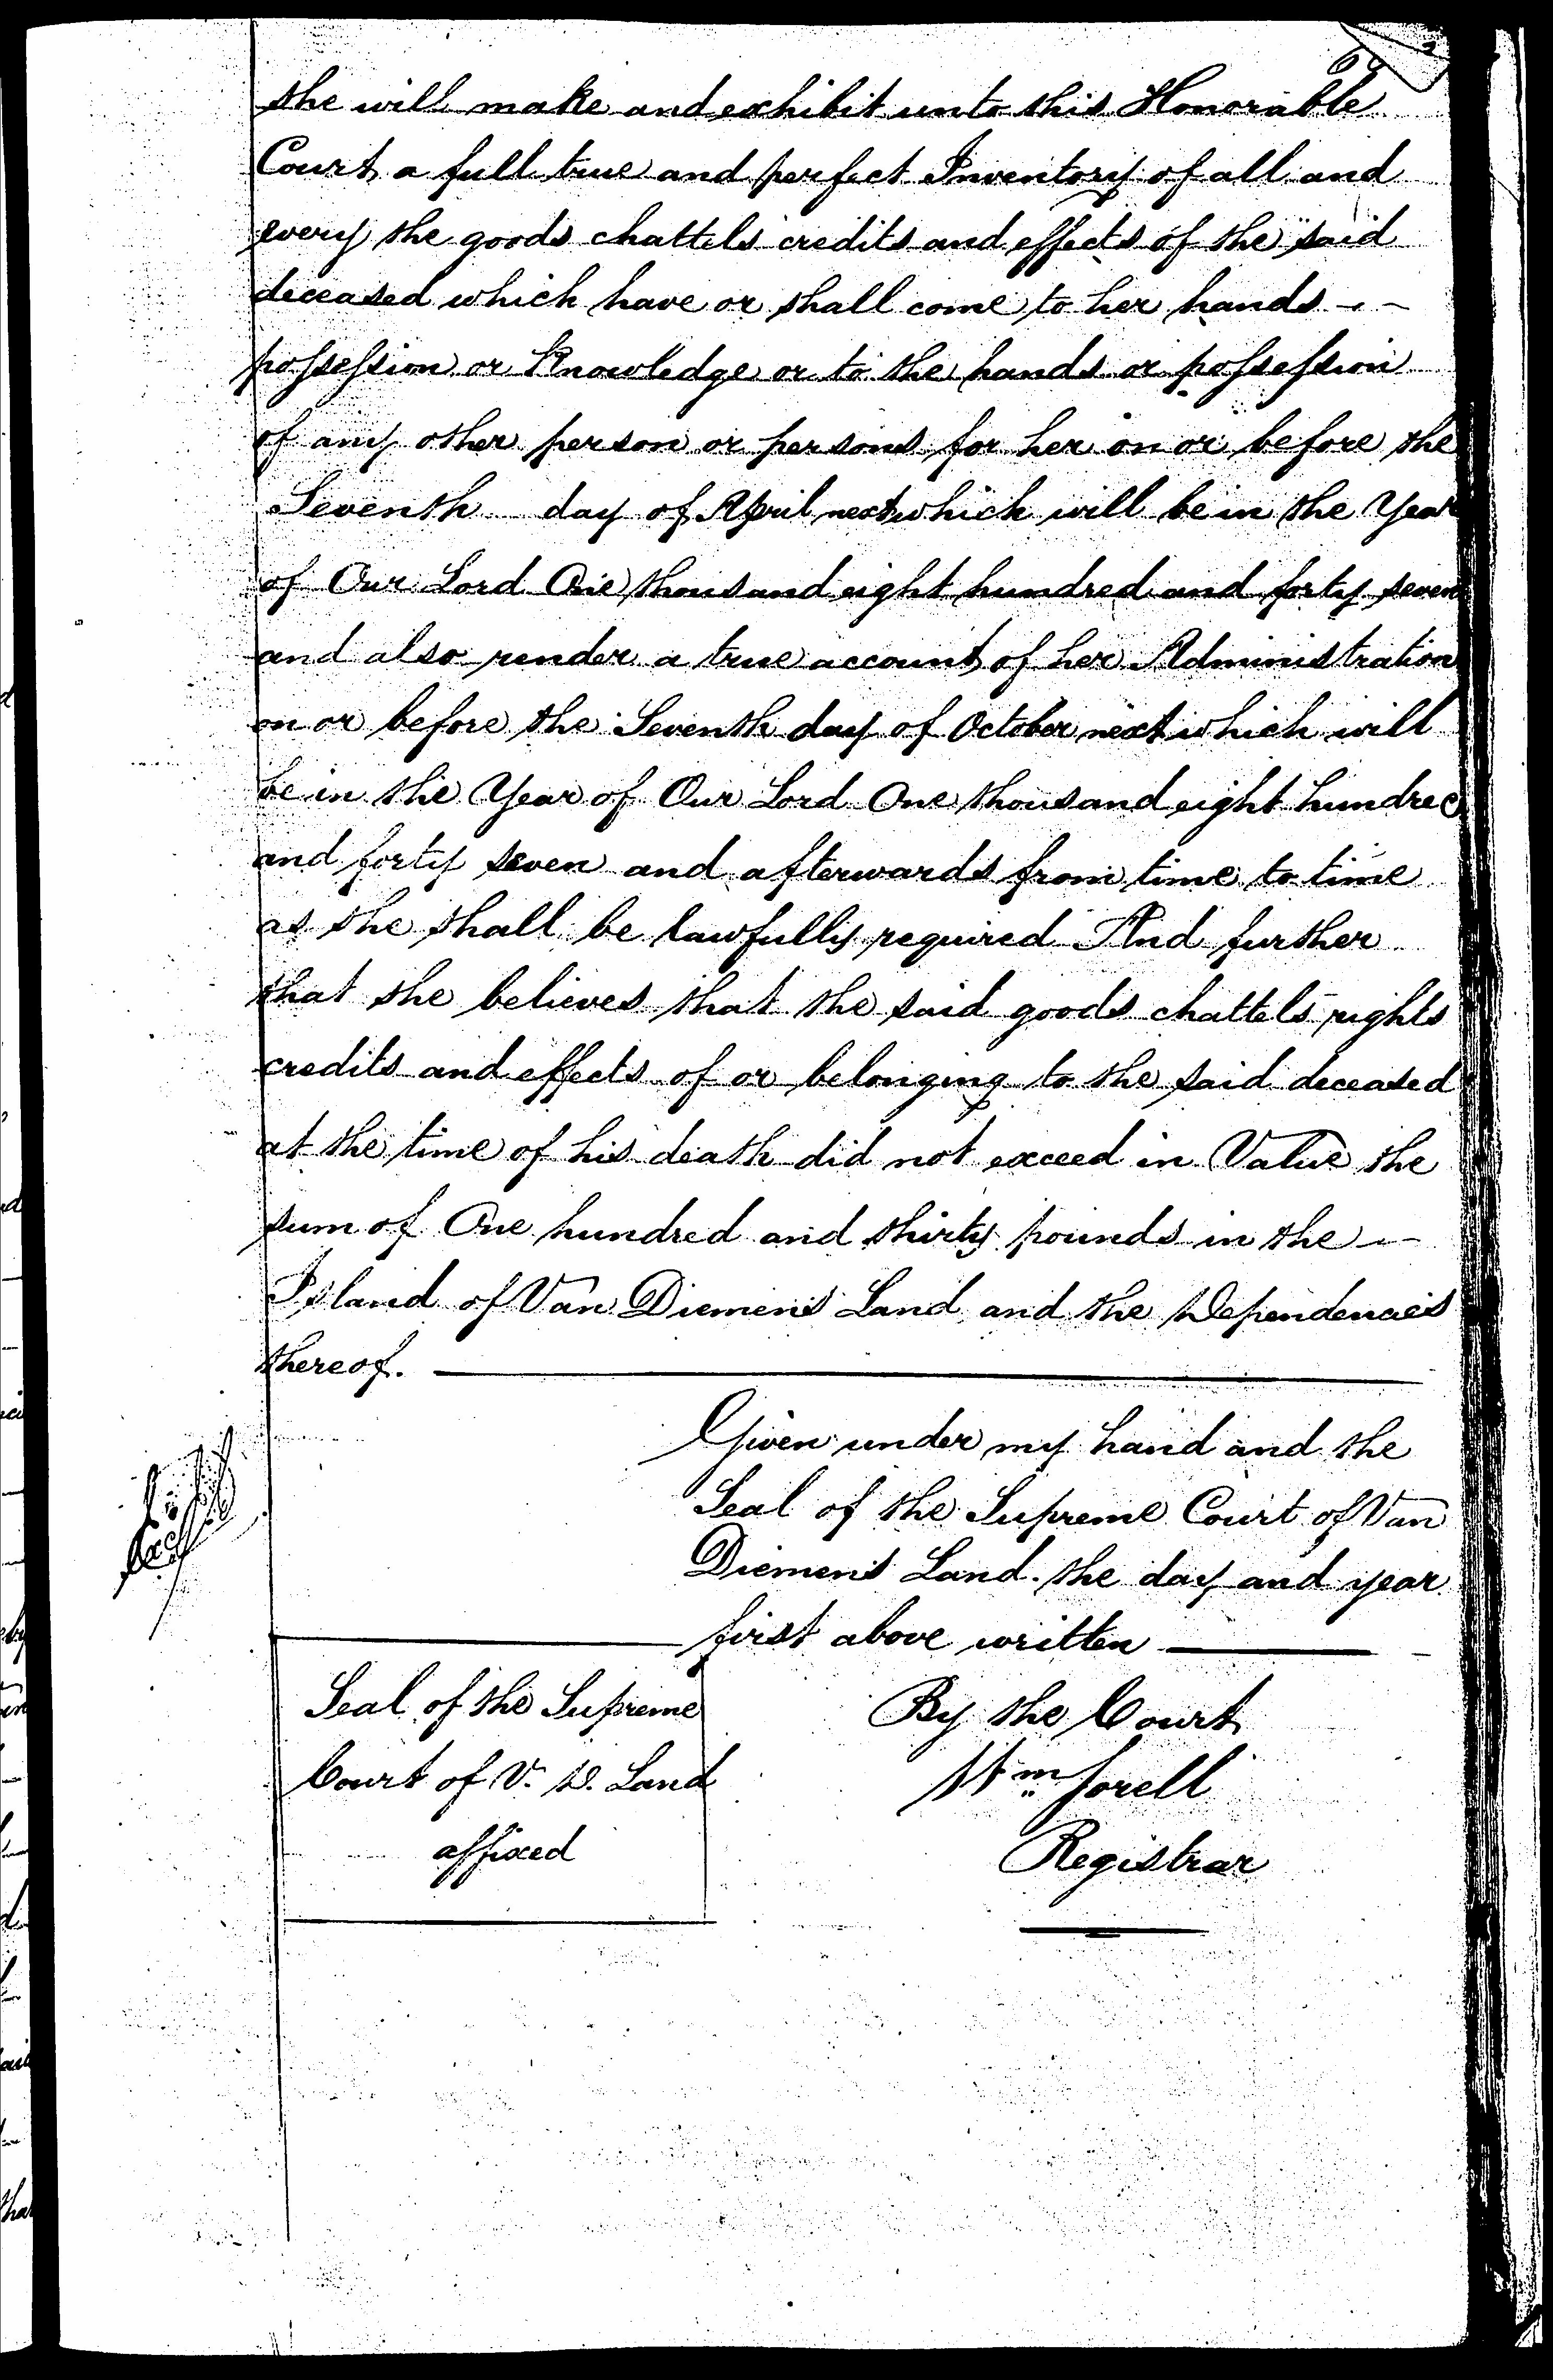 she will make and exhibit unto this Honorable
Court a full true and perfect Inventory of all and
every the goods chattels credits and effects of the said
deceased which have or shall come to her hands - -
possession or Knowledge or to the hands or possession
of any other person or persons for her on or before the
Seventh day of April next which will be in the Year
of Our Lord One thousand eight hundred and forty seven
and also render a true account of her Administration
on or before the Seventh day of October next which will
be in the Year of Our Lord One thousand eight hundred
and forty seven and afterwards from time to time
as she shall be lawfully required And further
that she believes that the said goods chattels rights
credits and effects of or belonging to the said deceased
at the time of his death did not exceed in Value the
sum of One hundred and thirty pounds in the -
Island of Van Diemen's Land and the Dependencies
thereof.
Given under my hand and the
Seal of the Supreme Court of Van
Diemen's Land. the day and year
first above written
Seal of the Supreme
Court of V. D. Land
affixed
By the Court
Wm Sorell
Registrar